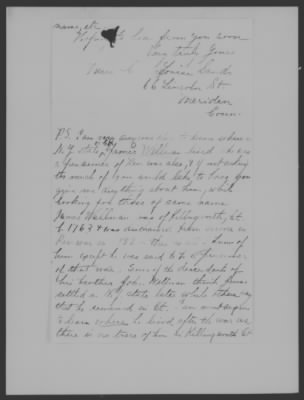 name, etc
Hoping to hear from you soon
Very truly yours
Louise
16 Lincoln St
Meriden
Conn.
P.S. I am very anxious also to know where
N.Y. state, James Wellman lived. He was
a pensioner of Rev war also, & if not asking
too much of you would like to have you
give me anything about him, while
looking for those of same name
James Wellman was of Killingworth, Ct
b 1763 & was discharged from service in
Rev war in 178 this was
him except he was said to be a pensioner
of that war. Some of the descendants of
his brother John Wellman think James
settled in N.Y. state later while others say
that he remained in Ct. I am
to learn where he lived after the war as
there is no trace of him in Killingworth Ct